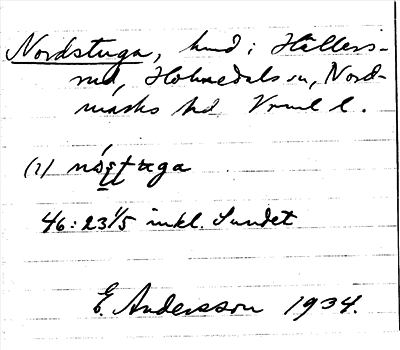 Nordstuga, hmd i Hällers-
rud, Holmedals sn, Nord-
marks hd Vrml l.
(1) nó̱s̱tuga
46:23 1/5 inkl. Sundet
E. Andersson 1934.